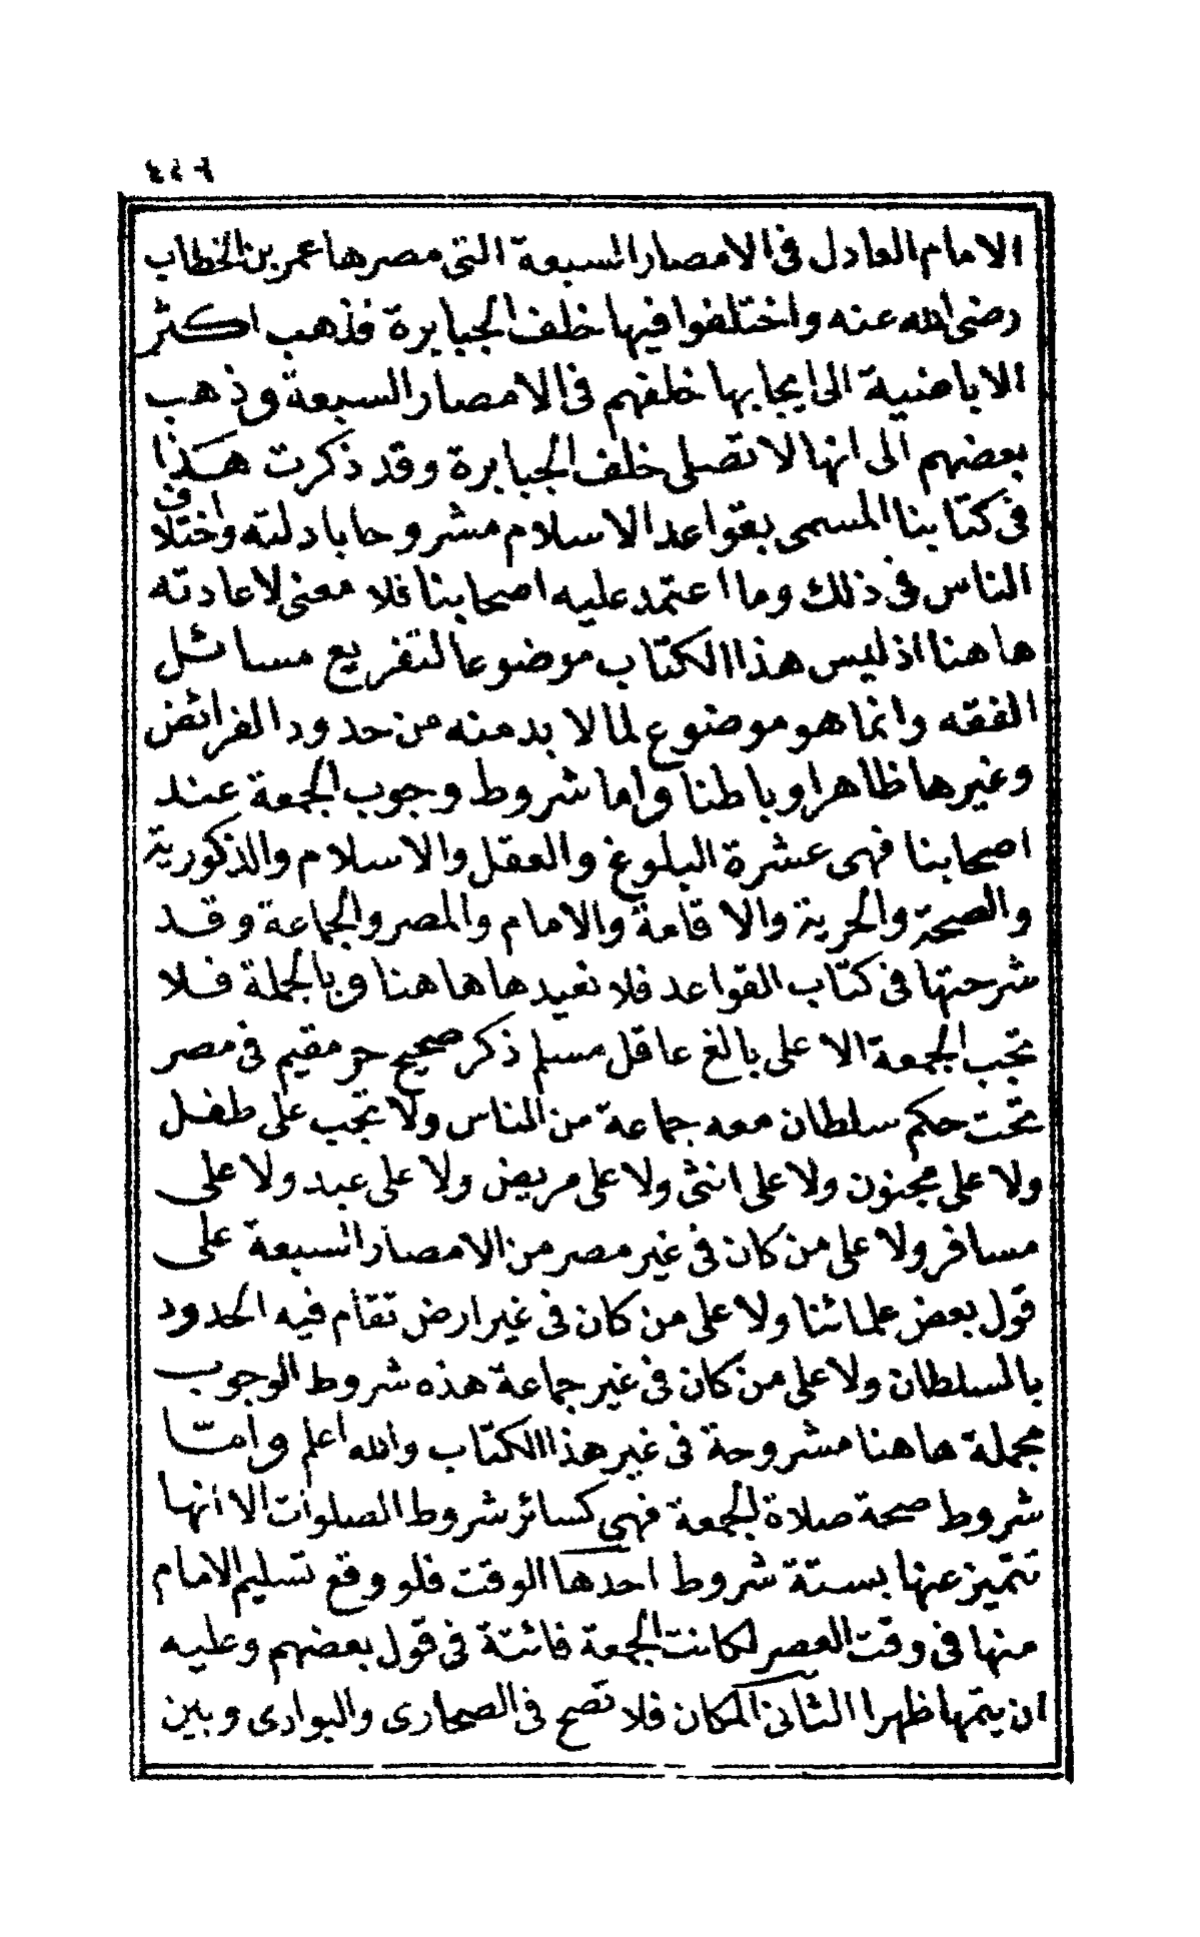 الامام العادل فى الامصار السبعة التى مصرها عمر بن الخطاب
رضى الله عنه واختلفوا فيها خلف الجبابرة فذهب اكثر
الاباضية الى ايجابها خلفهم فى الامصار السبعة وذهب
بعضهم الى انها لا تصلى خلف الجبابرة وقد ذكرت هذا
فى كتابنا المسمى بقواعد الاسلام مشروحا بادلته واختلاف
الناس فى ذلك وما اعتمد عليه اصحابنا فلا معنى لاعادته
هاهنا اذ ليس هذا الكتاب موضوعا لتفريع مسائل
الفقه وانما هو موضوع لما لا بد منه من حدود الفرائض
وغيرها ظاهرا وباطنا واما شروط وجوب الجمعة عند
اصحابنا فهى عشرة البلوغ والعقل والاسلام والذكورية
والصحة والحرية والاقامة والامام والمصر والجماعة وقد
شرحتها فى كتاب القواعد فلا نعيدها هاهنا وبالجملة فلا
تجب الجمعة الا على بالغ عاقل مسلم ذكر صحيح حر مقيم فى مصر
تحت حكم سلطان معه جماعة من الناس ولا تجب على طفل
ولا على مجنون ولا على انثى ولا على مريض ولا على عبد ولا على
مسافر ولا على من كان فى غير مصر من الامصار السبعة على
قول بعض علمائنا ولا على من كان فى غير ارض تقام فيه الحدود
بالسلطان ولا على من كان فى غير جماعة هذه شروط الوجوب
مجملة هاهنا مشروحة فى غير هذا الكتاب والله اعلم وامّا
شروط صحة صلاة الجمعة فهى كسائر شروط الصلوات الا انها
تتميز عنها بستة شروط احدها الوقت فلو وقع تسليم الامام
منها فى وقت العصر لكانت الجمعة فائتة فى قول بعضهم وعليه
ان يتمها ظهرا الثانى المكان فلا تصح فى الصحارى والبوادى وبين